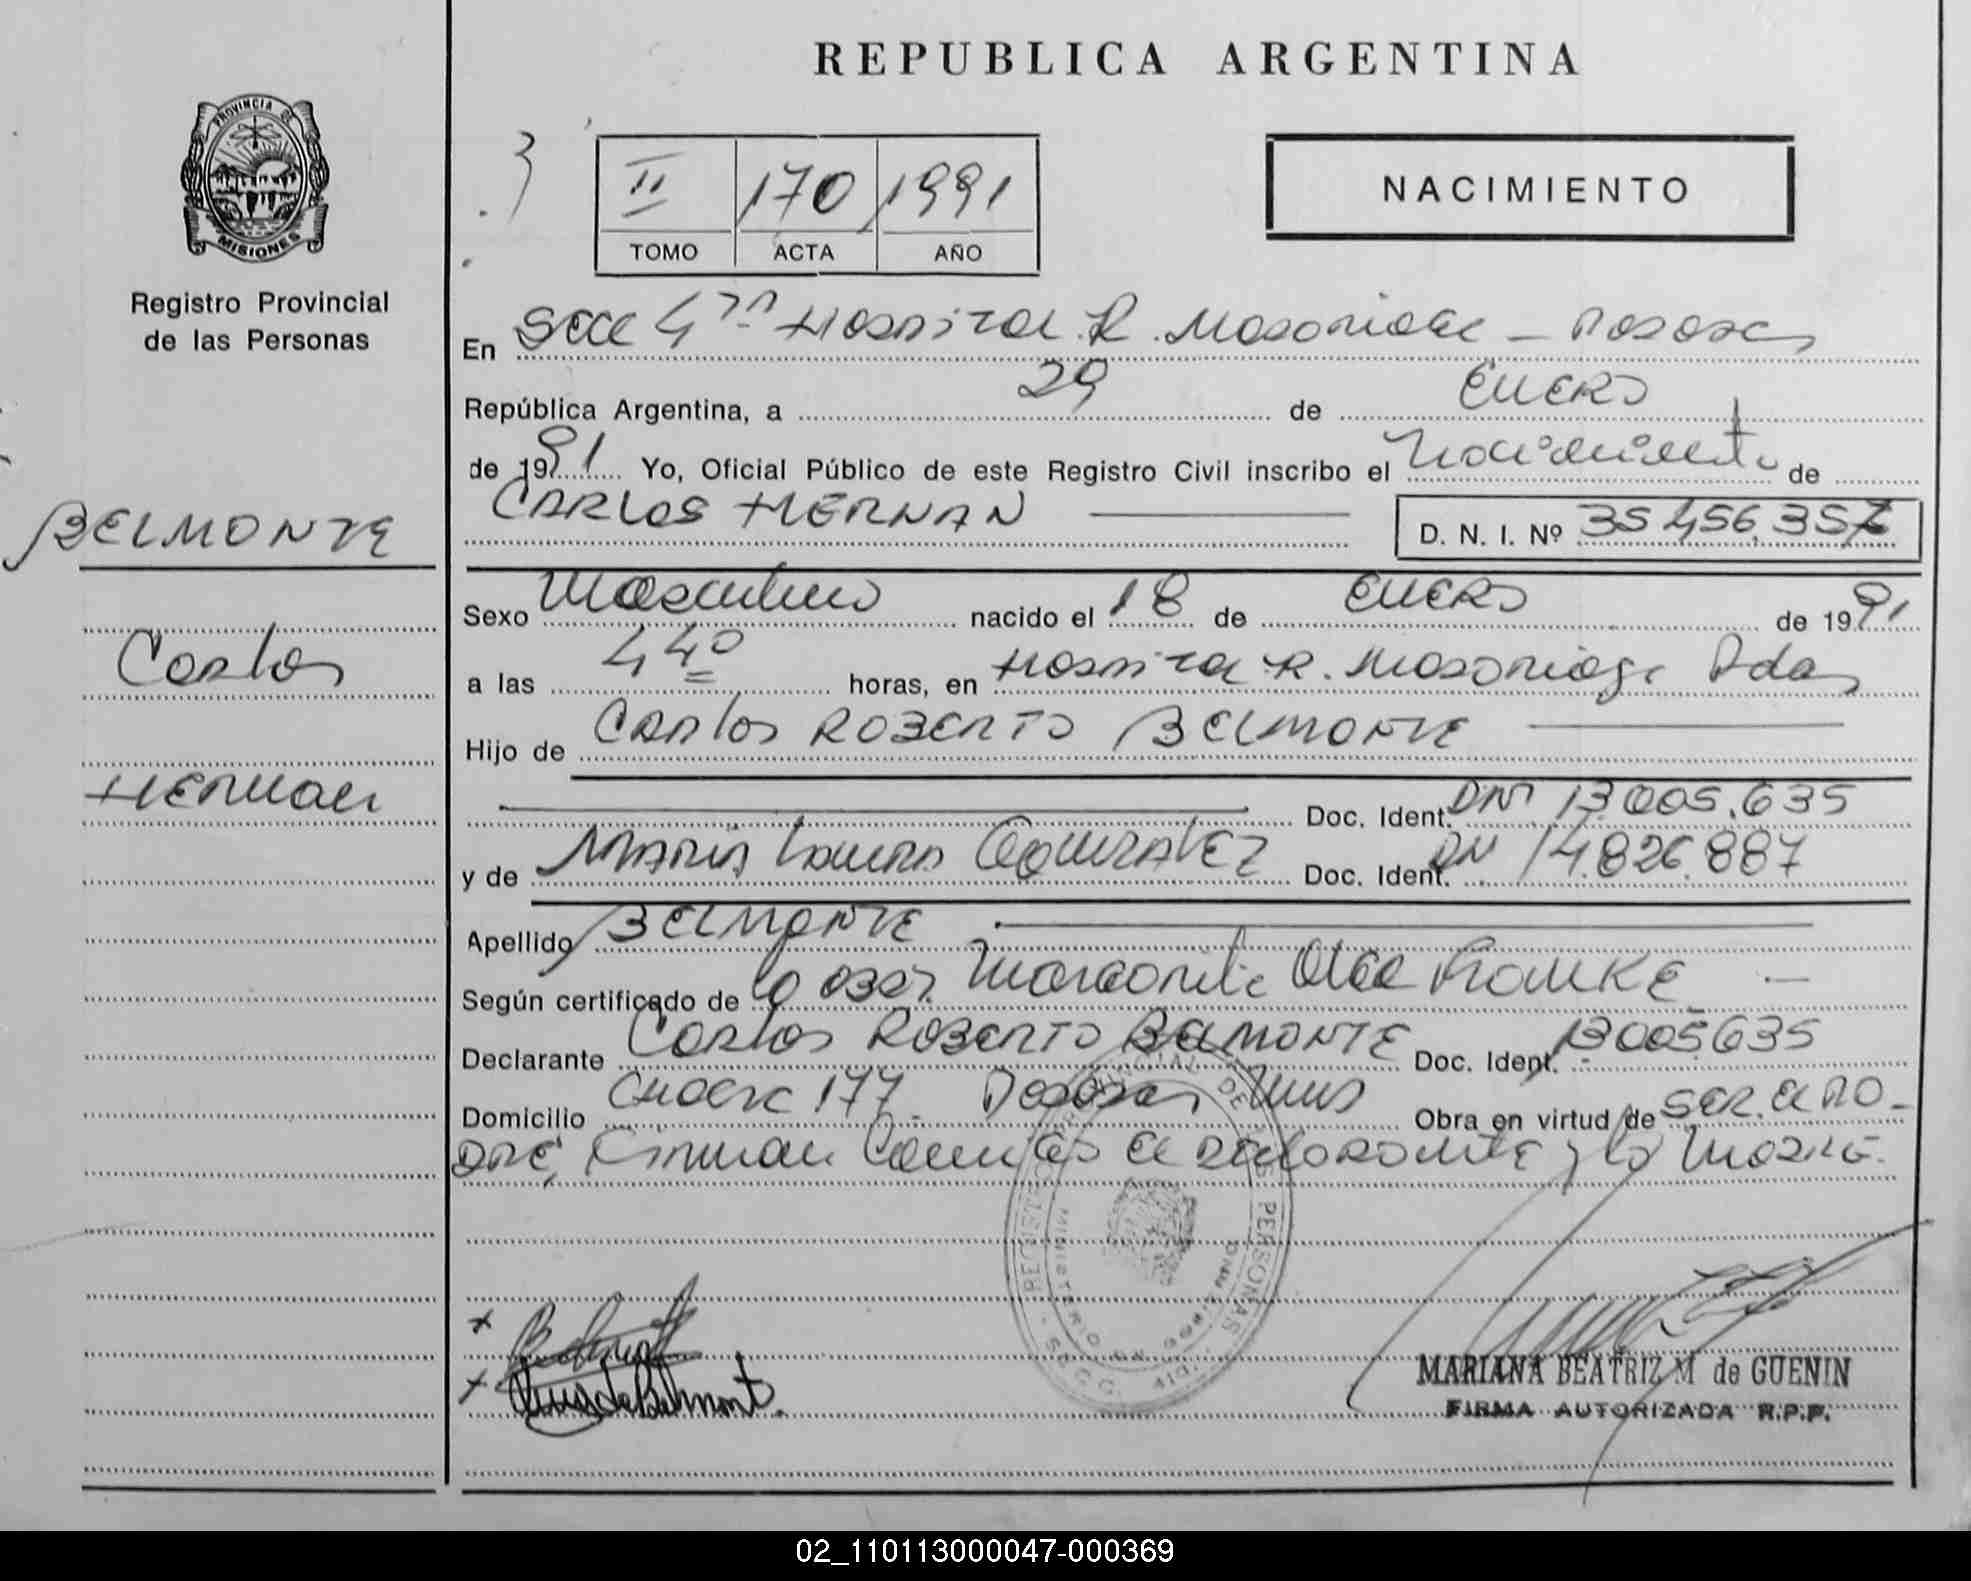 REPUBLICA ARGENTINA
PROVINCIA DE
MISIONES
Registro Provincial
de las Personas
II 170 1991
TOMO ACTA AÑO
NACIMIENTO
En Secc 4ta Hospital R. Madariaga - Posadas
República Argentina, a 29 de ENERO
de 1991 Yo, Oficial Público de este Registro Civil inscribo el Nacimiento de
CARLOS HERNAN
D. N. I. Nº 35.456.357
BELMONTE
Carlos
HERNAN
Sexo Masculino nacido el 18 de ENERO de 1991
a las 4 40 horas, en Hospital R. Madariaga Pdas
Hijo de Carlos ROBERTO BELMONTE
Doc. Ident. DNI 13.005.635
y de MARIA Laura GONZALEZ Doc. Ident. DNI 14.826.887
Apellido BELMONTE
Según certificado de la obst. Margarita
Declarante Carlos ROBERTO BELMONTE Doc. Ident. 13005635
Domicilio 177 Posadas Mnes Obra en virtud de ser el pa-
dre, Firman el declarante y la Madre.
REGISTRO PROVINCIAL DE LAS PERSONAS
MINISTERIO DE GOBIERNO
MARIANA BEATRIZ M de GUENIN
FIRMA AUTORIZADA R.P.P.
02_110113000047-000369